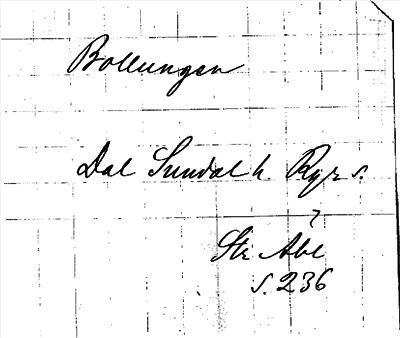 Bollungen
Dal Sundal h Ryr s.
?
Str Abl
s. 236